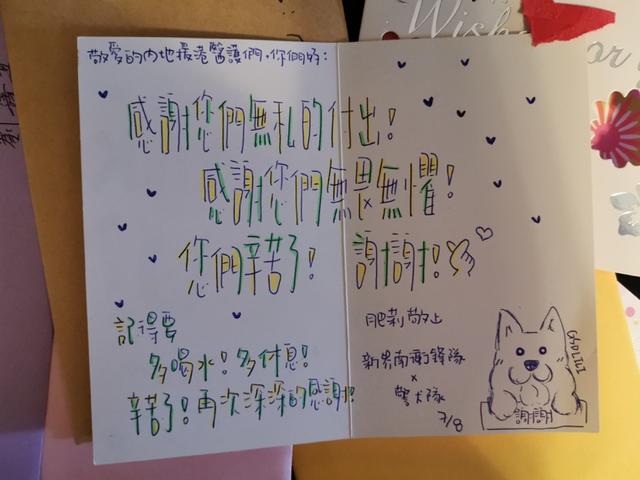 敬愛的內地援港醫護們，你們好：
感謝您們無私的付出！
感謝您們無畏無懼！
你們辛苦了！ 謝謝！
記得要
多喝水！多休息！
辛苦了！再次深深的感謝！
肥莉敬上
新界南衝鋒隊
x
警犬隊
7/8
謝謝
Wish
or